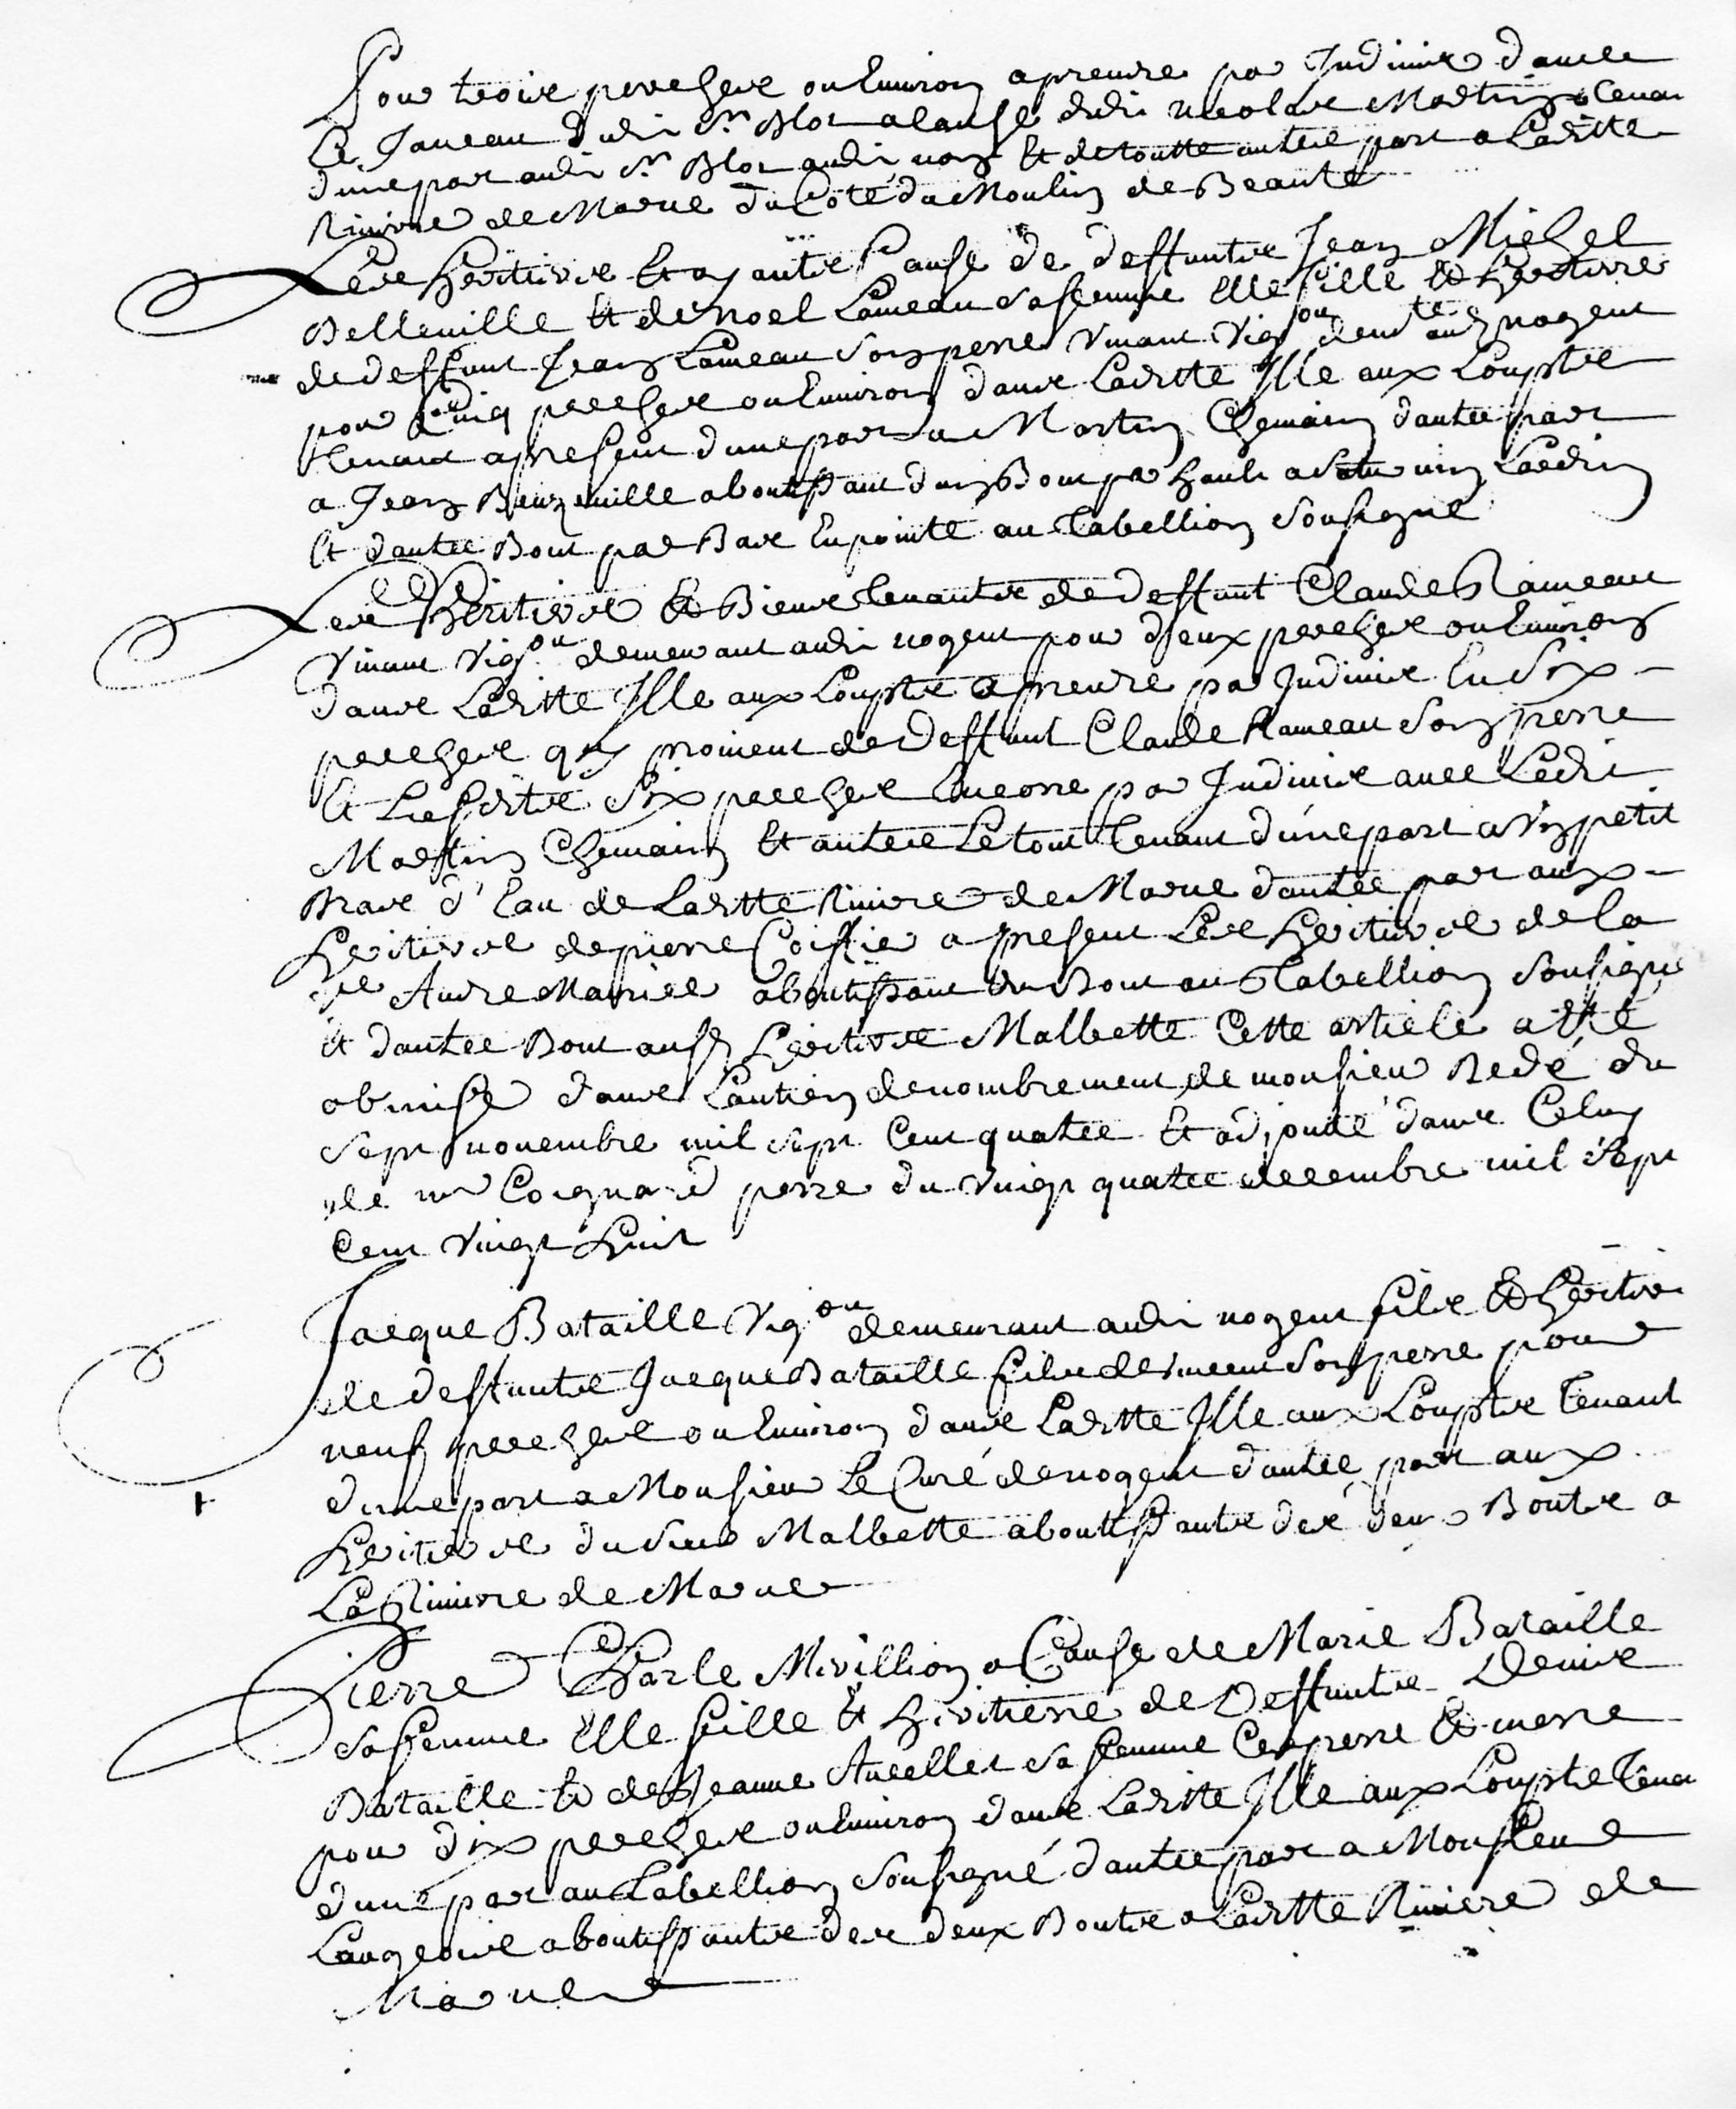 Pour troix perches ou Environ a prendre par Indivis dans
le Jaueau dudit Sr. Blot a cause dudit nicolas Martin tenan
d'une part audit Sr. Blot audit nom Et de toutte autre part a Laditte
Riviere de Marne du Coté du Moulin de Beauté
Les heritiers Et ayants Cause de deffunts Jean Michel
Belleville Et de noel Lameau sa femme Elle fille Et heritiere
de deffunt Jean Lameau son pere vivant vigon demt aud nogent
pour Cinq perches ou Environ dans Laditte Isle aux Loupts
tenant a present d'une part a Martin Chemain d'autre part
a Jean aboutissant d'un Bout par hault a Ledin
Et d'autre Bout par Bas En pointe au Tabellion sousigné
Les heritiers Et Biens tenants de deffunt Claude Rameau
vivant vigon demeurant audit nogent pour deux perches ou Environ
dans Laditte Isle aux Loupts a prendre par Indivis En Six
perches quy provient de deffunt Claude Rameau son pere
Et Lesdits Six perches Encorre par Indivis avec Ledit
Martin Chemain Et autres Le tout tenant d'une part a un petit
Bras d'Eau de Laditte Riviere de Marne d'autre part aux
heritiers de pierre Coiffier a present Les heritiers de la
Ve Andre Mariee aboutissant du Bout au Tabellion sousigné
Et d'autre Bout ausd heritiers Malbette Cette article a Eté
obmise dans Lantien denombrement de monsieur Redé du
sept novembre mil sept Cent quatre Et adjouté dans Celuy
de mr Coignard perre du vingt quatre decembre mil sept
Cent vingt huit
Jacque Bataille vigon demeurant audit nogent fils Et heritier
de deffunts Jacque Bataille fils de vincent son pere pour
neuf perches ou Environ dans Laditte Isle aux Loupts tenant
d'une part a Monsieur Le Curé de nogent d'autre part aux
heritiers du sieur Malbette aboutissants des deux Bouts a
La Riviere de Marne
Pierre Charle Mivillion a Cause de Marie Bataille
sa femme Elle fille Et heritiere de Deffunts Denis
Bataille Et de Jeanne Ancellet sa femme Ces perre Et merre
pour dix perches ou Environ dans Laditte Isle aux Loupts tenan
d'une part au Tabellion sousigné d'autre part a Monsieur
Langeois aboutissants des deux Bouts a Laditte Riviere de
Marne